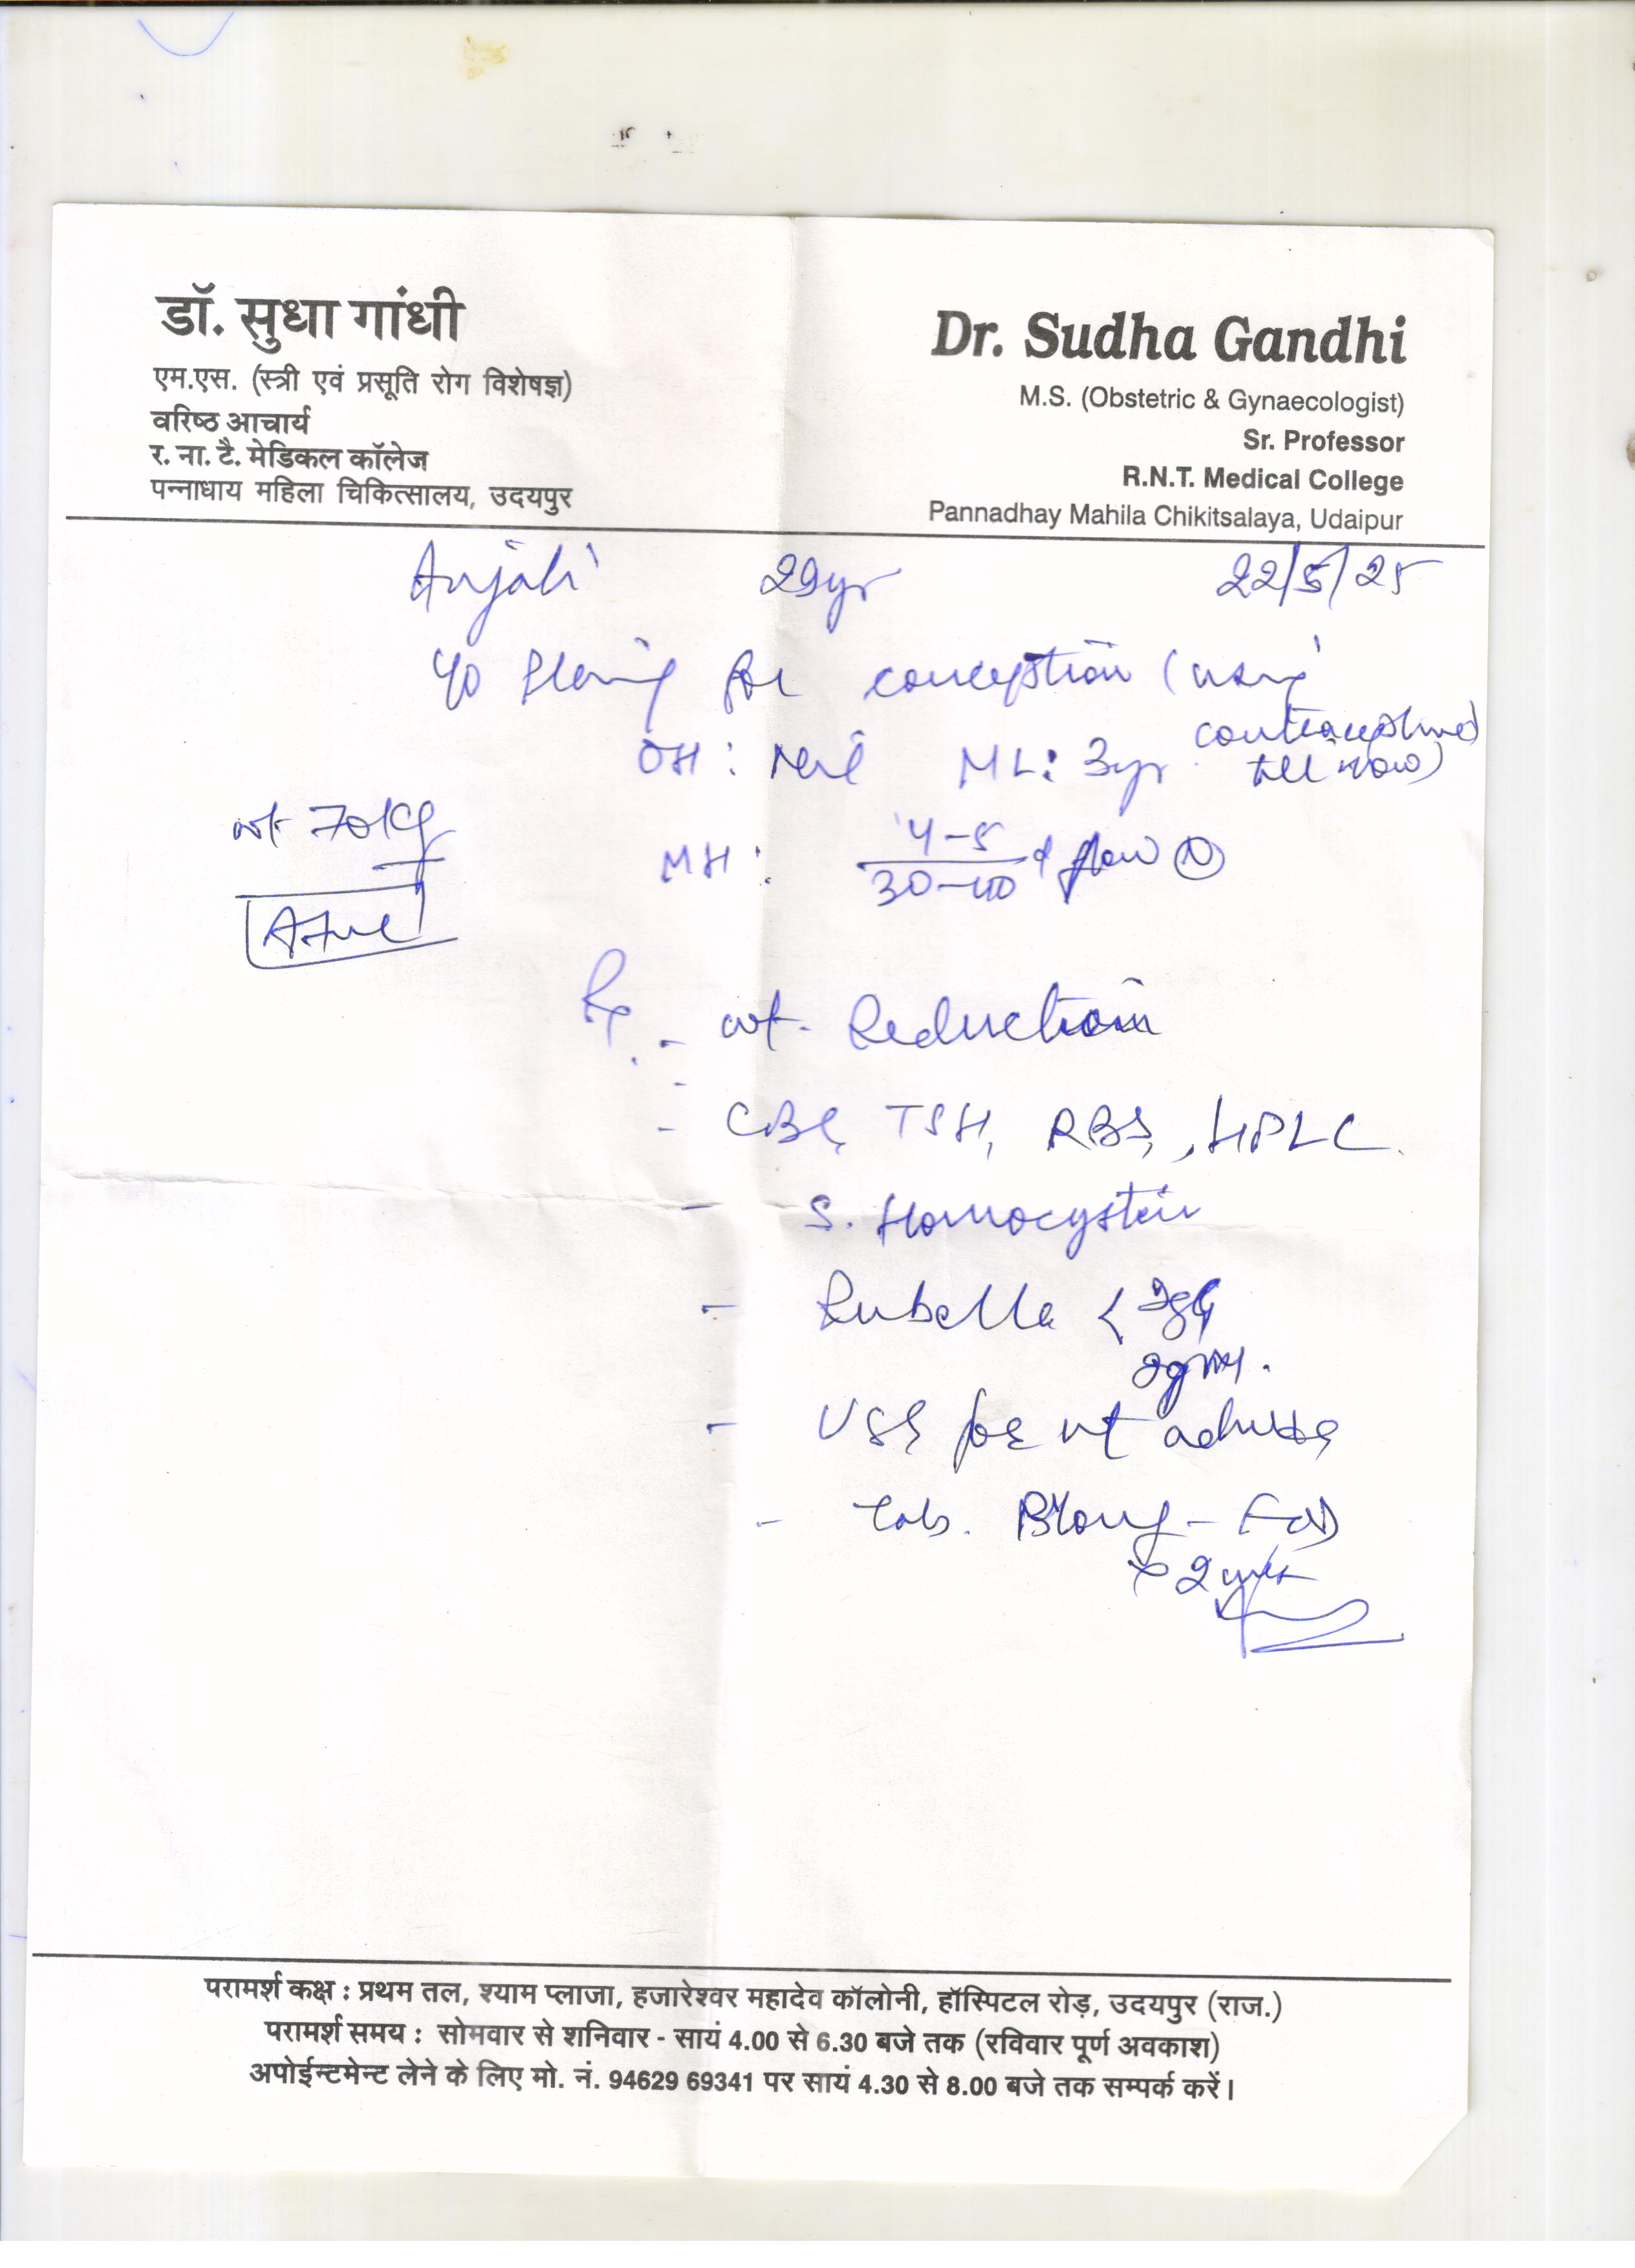 डॉ. सुधा गांधी
एम.एस. (स्त्री एवं प्रसूति रोग विशेषज्ञ)
वरिष्ठ आचार्य
र. ना. टै. मेडिकल कॉलेज
पन्नाधाय महिला चिकित्सालय, उदयपुर
Dr. Sudha Gandhi
M.S. (Obstetric & Gynaecologist)
Sr. Professor
R.N.T. Medical College
Pannadhay Mahila Chikitsalaya, Udaipur
Anjali 29yr 22/5/25
for conception (using
till now)
OH : Nil ML: 3yr
wt 70kg
MH : 4-5
30-40 d flow (N)
Rx
- wt. Reduction
- CBC, TSH, RBS, HPLC
- S. Homocystein
- Rubella < IgG
IgM.
- USG for ut
- Tab.
परामर्श कक्ष : प्रथम तल, श्याम प्लाजा, हजारेश्वर महादेव कॉलोनी, हॉस्पिटल रोड़, उदयपुर (राज.)
परामर्श समय : सोमवार से शनिवार - सायं 4.00 से 6.30 बजे तक (रविवार पूर्ण अवकाश)
अपोईन्टमेन्ट लेने के लिए मो. नं. 94629 69341 पर सायं 4.30 से 8.00 बजे तक सम्पर्क करें।